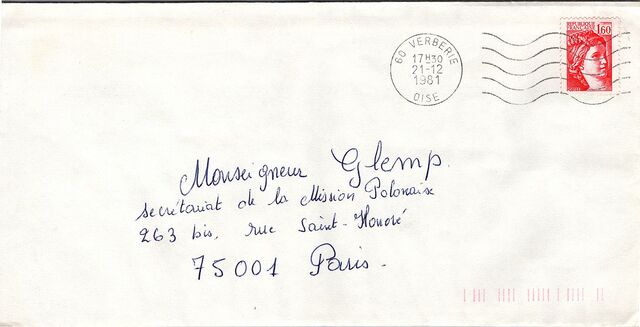 60 VERBERIE
17H30
21-12
1981
OISE
REPUBLIQUE
FRANCAISE
1,60
Monseigneur Glemp.
secrétariat de la Mission Polonaise
263 bis, rue Saint-Honoré
75001 Paris.